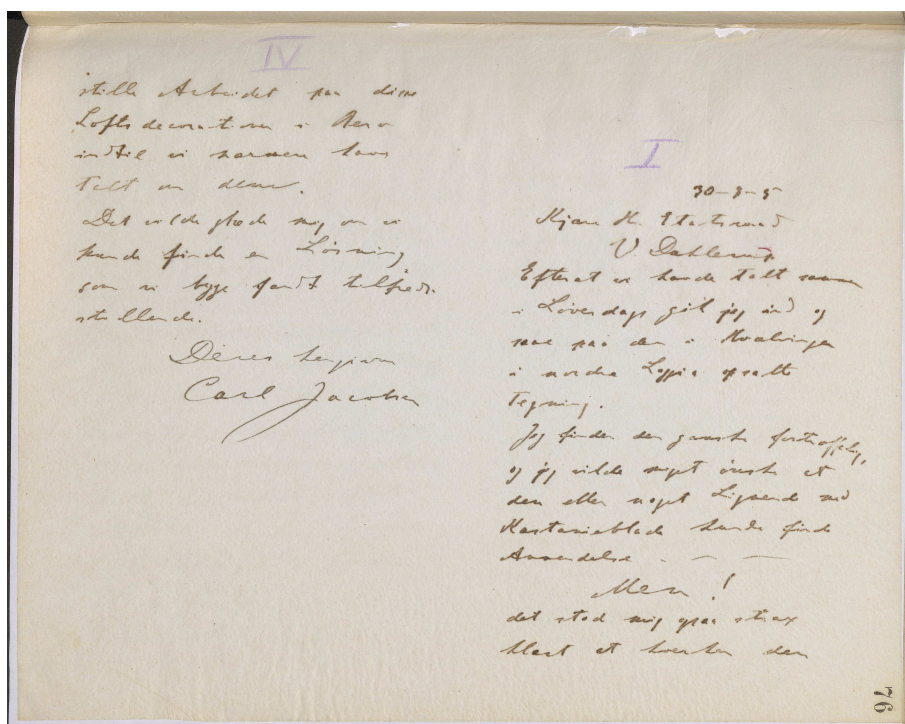 IV
stille Arbeidet paa disse
Loftsdecorationer i Bero
indtil vi sammen have
talt om dem.
Det vilde glæde mig om vi
kunde finde en Løsning
som vi begge fandt tilfreds-
stillende.
Deres hengivne
Carl Jacobsen
I
30-8-5
Kjære Hr. Etatsraad
V. Dahlerup
Efterat vi havde talt sammen
i Løverdags gik jeg ind og
saae paa den i Hvælvingen
i nordre Loggia opsatte
Tegning.
Jeg finder den ganske fortræffelig,
og jeg vilde meget ønske at
den eller noget Lignende med
Kastanieblade kunde finde
Anvendelse. — —
Men!
det stod mig ogsaa strax
klart at hverken den
76